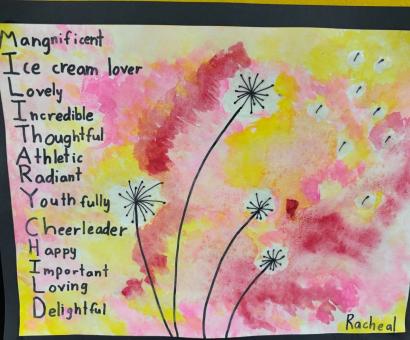 Mangnificent
Ice cream lover
Lovely
Incredible
Thoughtful
Athletic
Radiant
Youthfully
Cheerleader
Happy
Important
Loving
Delightful
Racheal